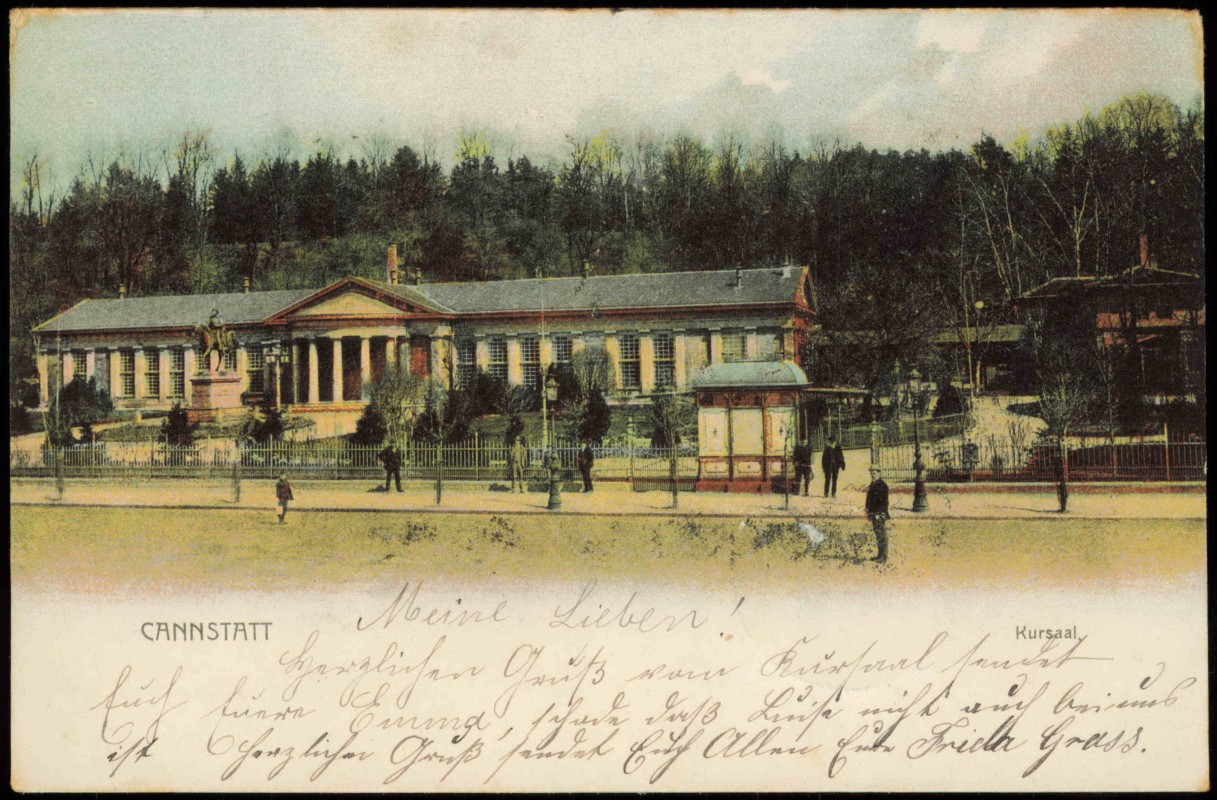 CANNSTATT
Kursaal.
Meine Lieben!
Herzlichen Gruß vom Kursaal sendet
Euch Euere Emma, schade daß Luise nicht auch bei uns
ist Herzlichen Gruß sendet Euch Allen Eure Frieda Grass.